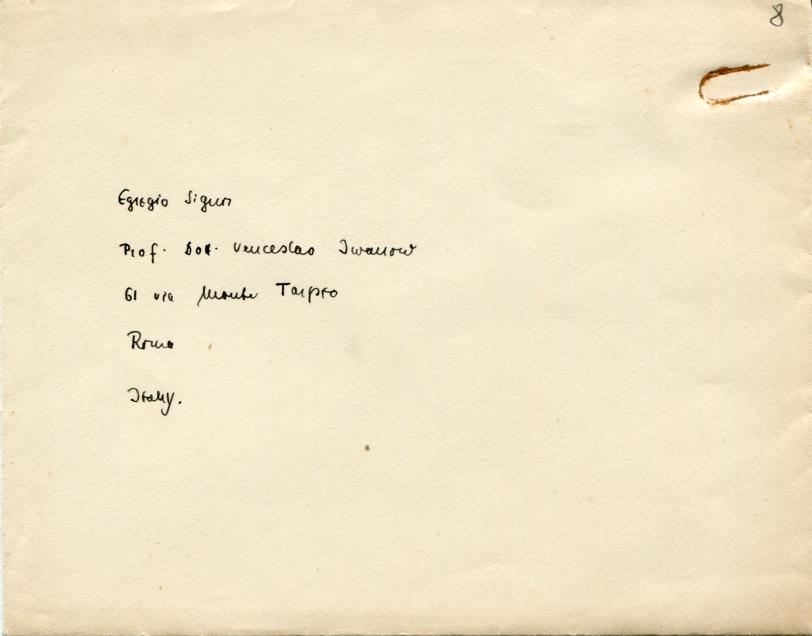 8
Egregio Signor
Prof. Dott. Venceslao Iwanow
61 via Monte Tarpeo
Roma
Italy.